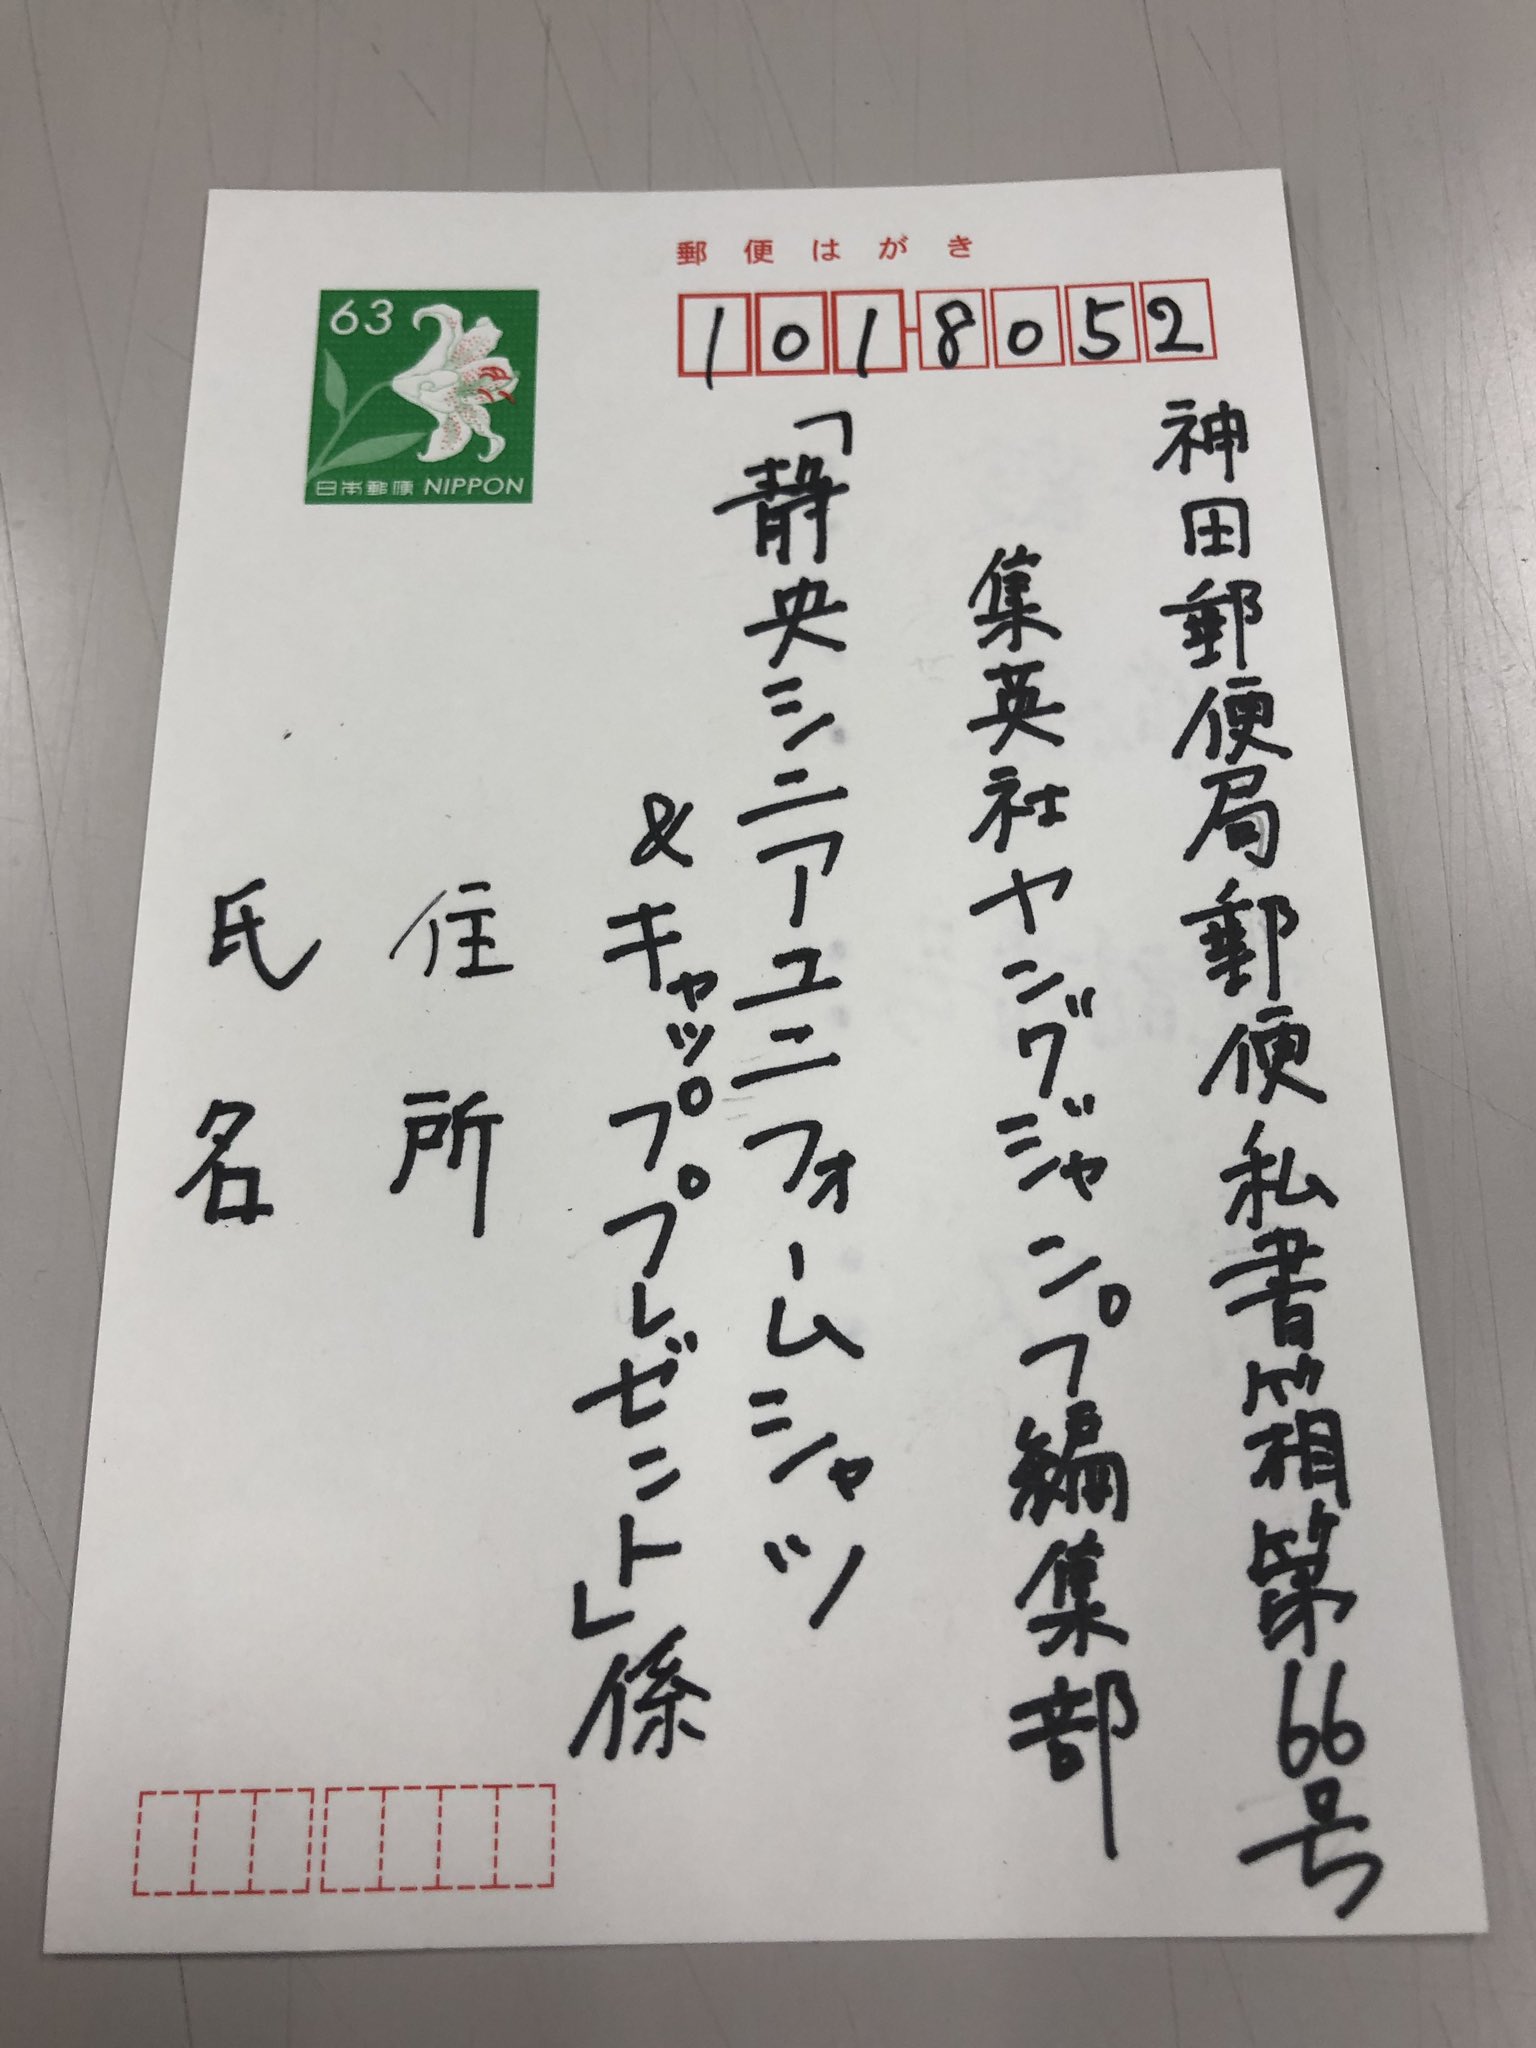 郵便はがき
101-8052
63
日本郵便 NIPPON
神田郵便局郵便私書箱第66号
集英社ヤングジャンプ編集部
「静央シニアユニフォームシャツ
&キャッププレゼント」係
住所
氏名